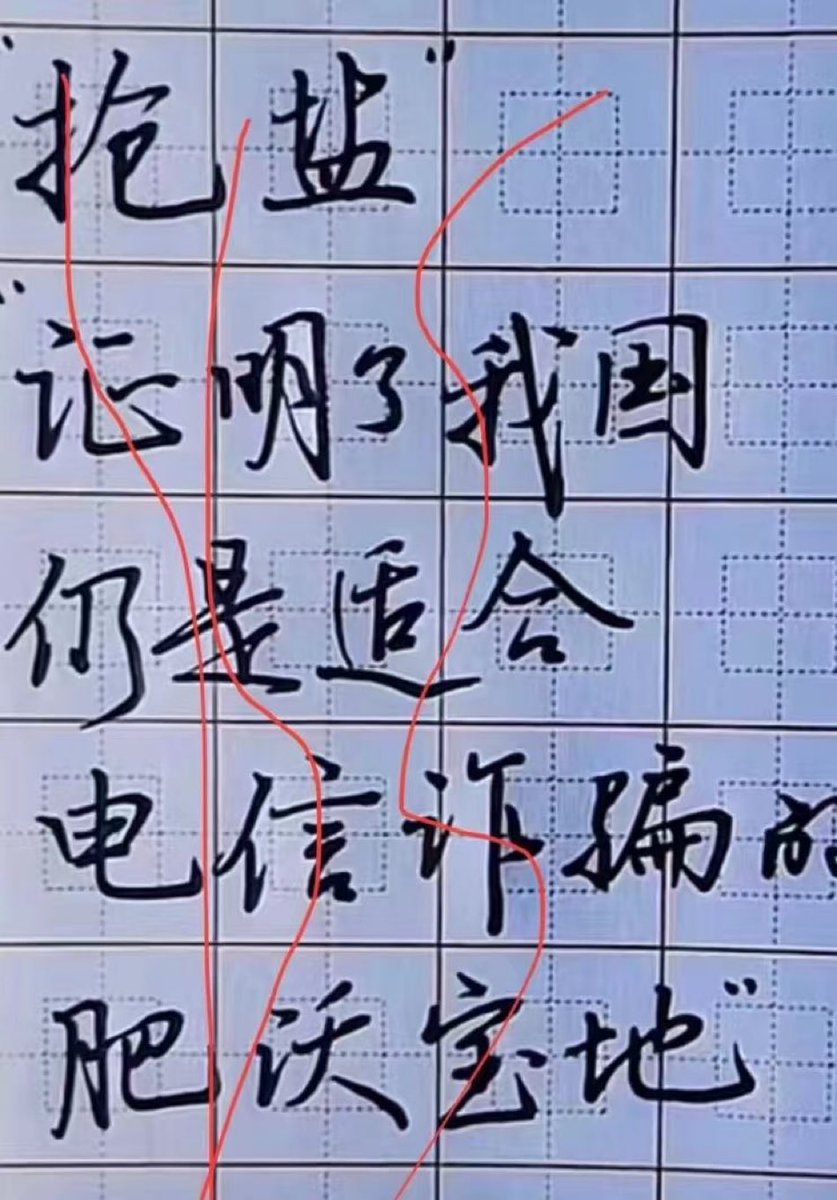 "抢盐"
"证明了我国
仍是适合
电信诈骗的
肥沃宝地"